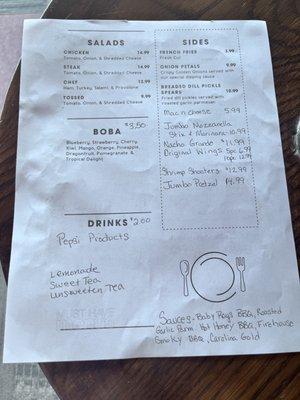 SALADS
CHICKEN 14.99
Tomato, Onion, & Shredded Cheese
STEAK 14.99
Tomato, Onion, & Shredded Cheese
CHEF 12.99
Ham, Turkey, Salami, & Provolone
TOSSED 9.99
Tomato, Onion, & Shredded Cheese
BOBA $3.50
Blueberry, Strawberry, Cherry,
Kiwi, Mango, Orange, Pineapple,
Dragonfruit, Pomegranate &
Tropical Delight
DRINKS $2.00
Pepsi Products
Lemonade
Sweet Tea
Unsweeten Tea
MUST HAVE
SIDES
FRENCH FRIES 5.99
Fresh Cut
ONION PETALS 9.99
Crispy Golden Onions served with
our special dipping sauce
BREADED DILL PICKLE
SPEARS 10.99
Fried dill pickles served with
roasted garlic parmesan
Mac n cheese 5.99
Jumbo Mozzarella
Stix & Marinara 10.99
Nacho Grande $11.99
Original Wings 5pc 6.99
10pc 12.99
Shrimp Shooters $12.99
Jumbo Pretzel 14.99
Sauces - Baby Rays BBQ, Roasted
Garlic Parm, Hot Honey BBQ, Firehouse
Smoky BBQ, Carolina Gold